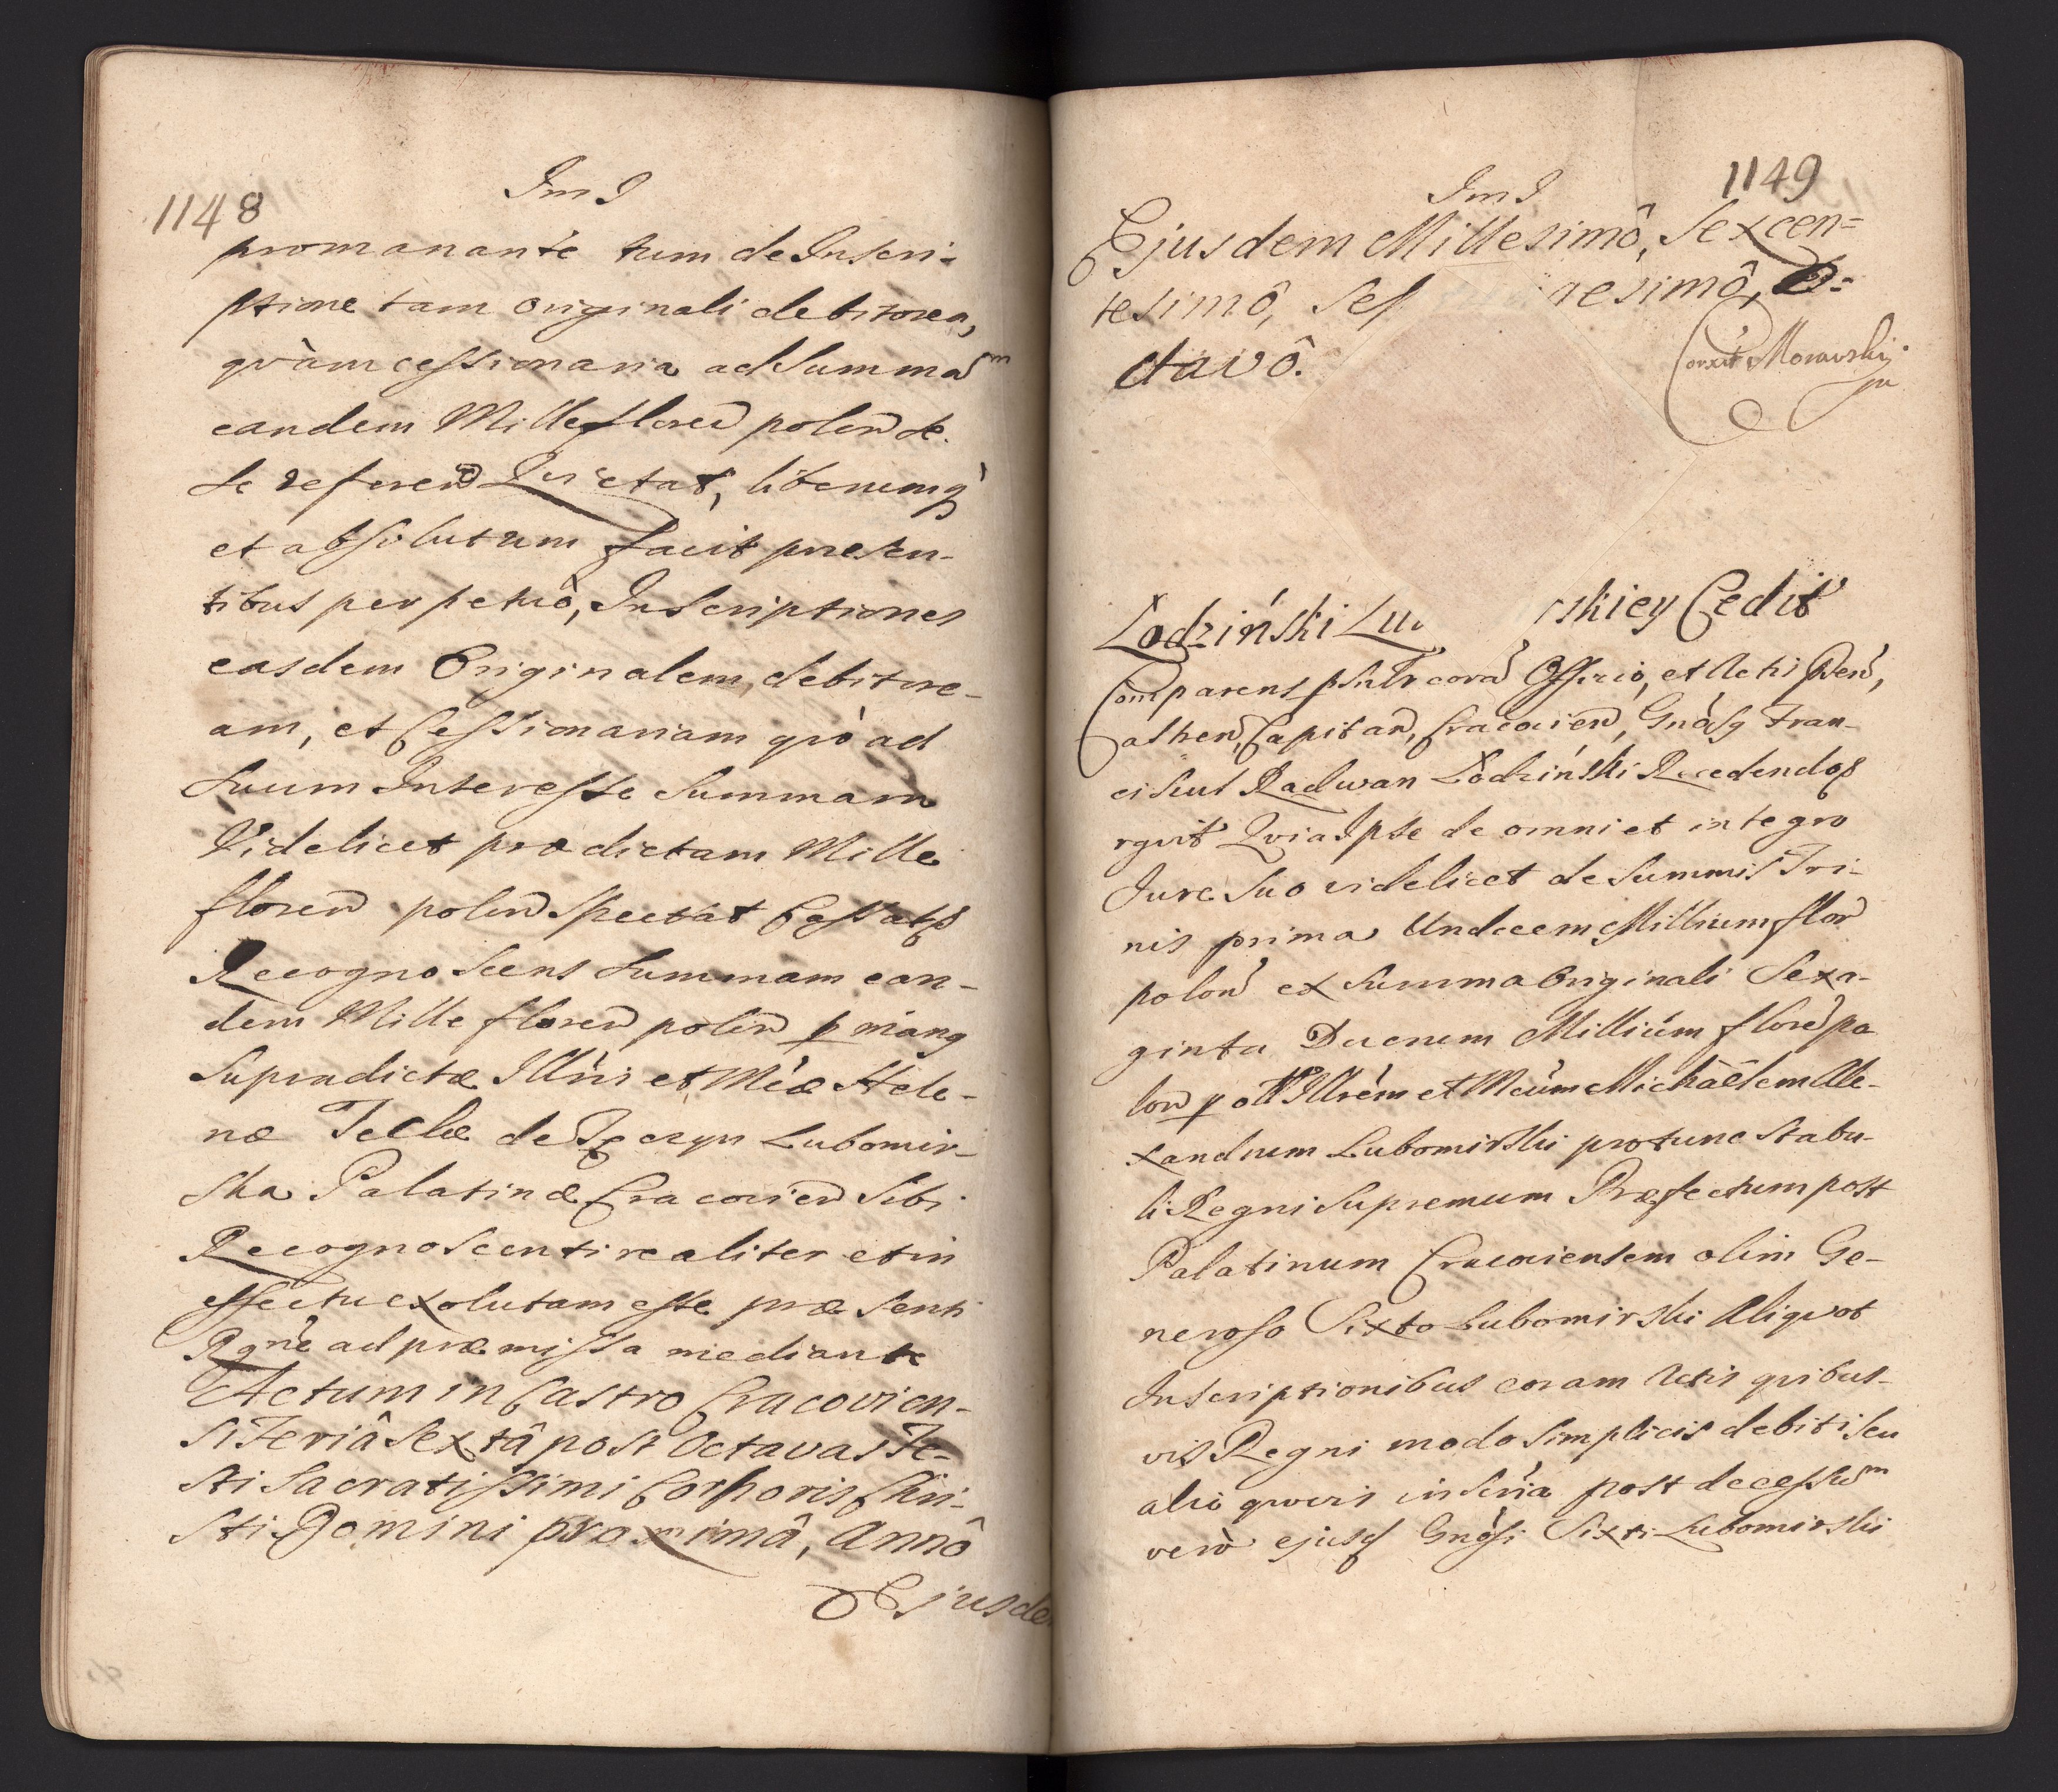 1148
ImI
promanante tum de Inscri-
ptione tam originali debitorea,
qvàm cessionaria ad Summam
eandem Mille floren polon de
se referen Qvietat, liberumq
et absolutum facit praesen-
tibus perpetuò, Inscriptiones
easdem Originalem, debitore-
am, et Cessionariam qvò ad
suum Interesse Summam
Videlicet praedictam Mille
floren polon Spectat Cassat
Recognoscens Summam ean-
dem Mille floren polon p
Supradictae Illris et Mcae Hele-
nae Teclae de Lubomir-
ska Palatinae Cracovien Sibi
Recognoscenti realiter et in
effectu exolutam esse prae senti
Rgne ad praemissa mediante
Actum in Castro Cracovien-
si Feriâ Sextâ post Octavas Fe-
sti Sacratissimi Corporis Chri-
sti Domini proximâ, Annô
Ejusde
1149
ImI
Ejusdem Millesimô, Sexcen=
tesimô, Sep gesimô, O=
ctavô.
Corxit Moravskij
Lodziński Lu skiey Cedit
Comparens psntr cora Officio, et Actis Pen,
Casthen, Capitan, Cracovien, Gnosq Fran-
ciscus Radwan Lodziński Recedendo
rgvit Qvia Ipse de omni et integro
Jure Suo videlicet de Summis Tri-
nis prima Undecem Millium flor
polon ex Summa Originali Sexa-
ginta Duorum Millium floren po
lon p olt Illrem et Mcum Michaëlem Ale-
xandrum Lubomirski protunc Stabu-
li Regni Supremum Praefectum post
Palatinum Cracoviensem olim Ge-
neroso Sixto Lubomirski Aliqvot
Inscriptionibus coram Actis qvibus-
vis Regni modo Simplicis debiti seu
alio qvovis inscria post decessum
verò ejusd Gnosi Sixti Lubomirski